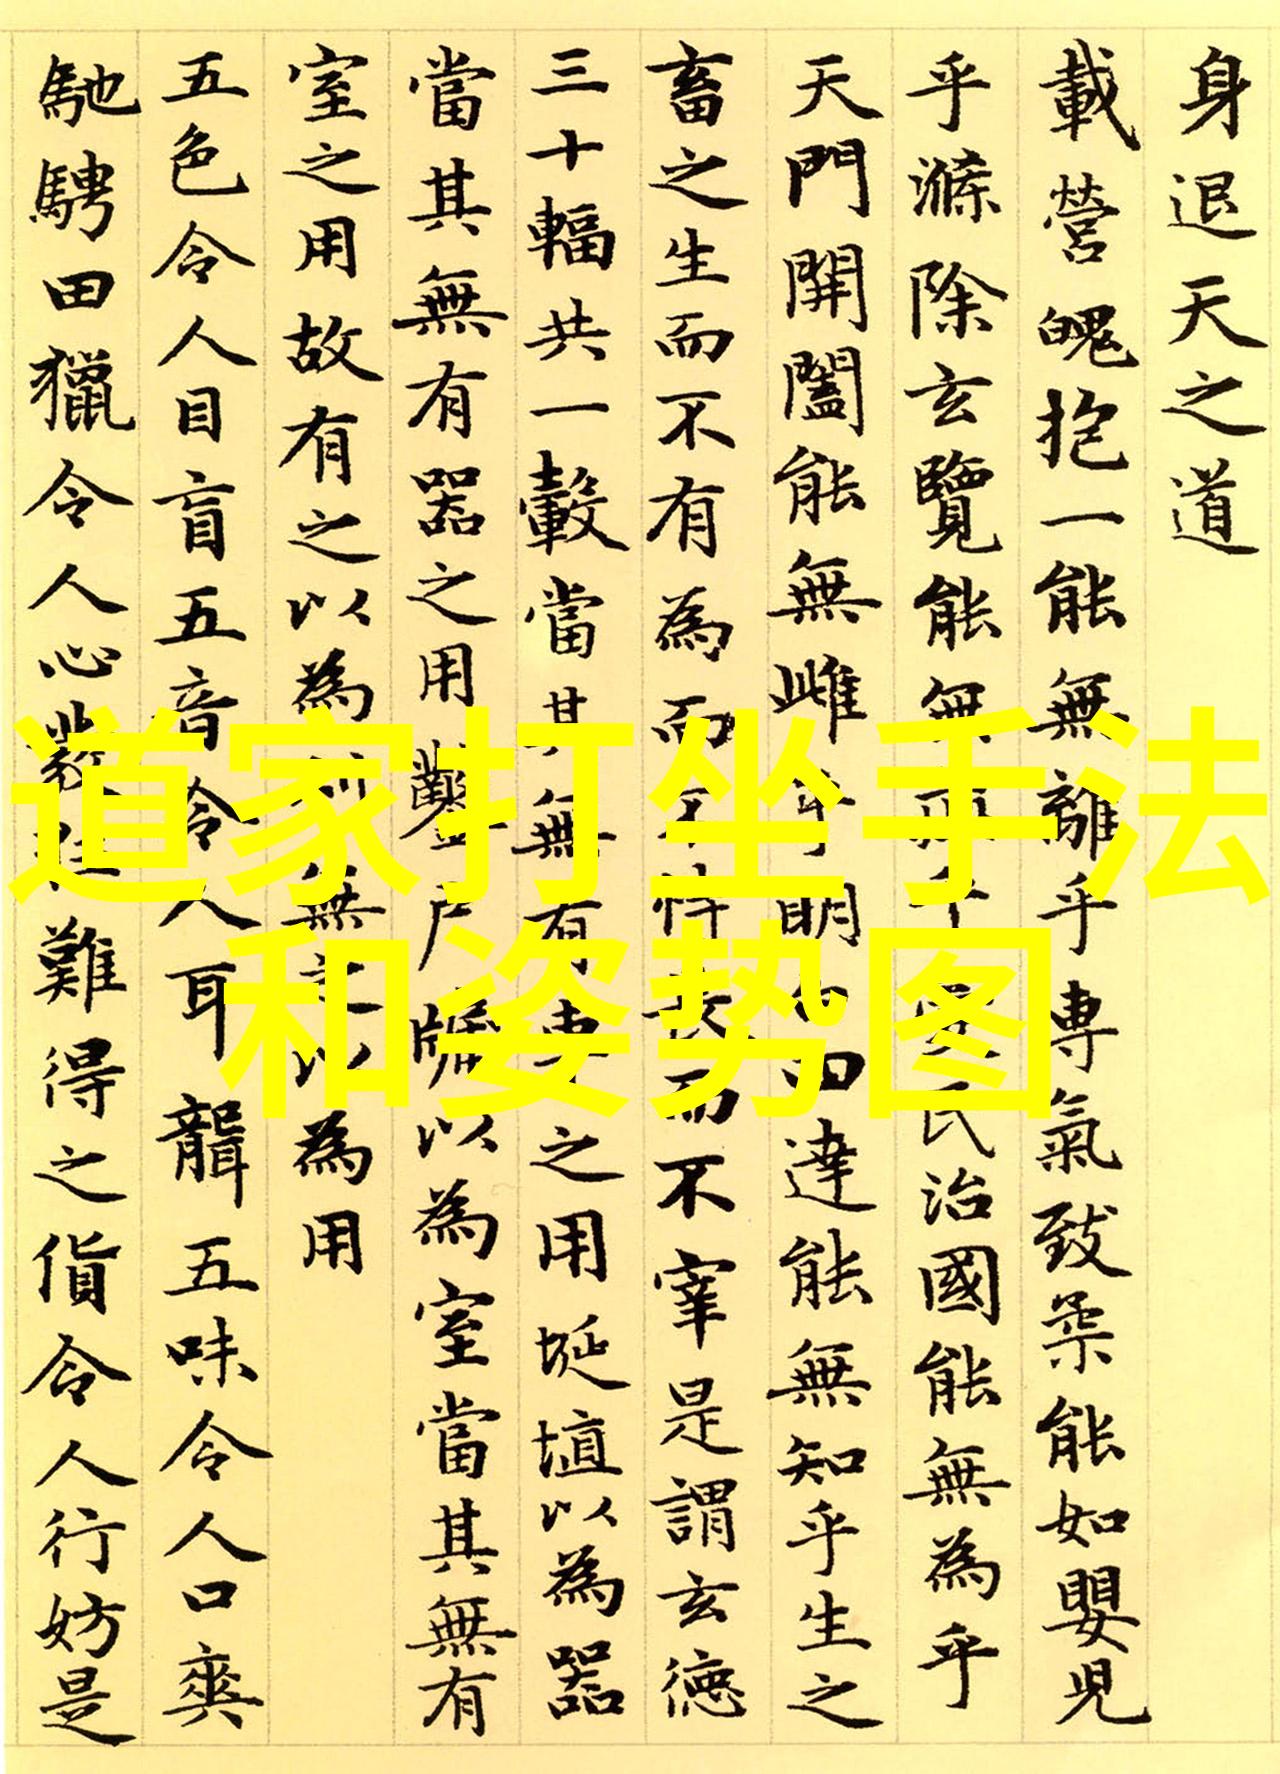 身退天之道
載營魄抱一能無離乎専氣致柔能如嬰児
乎滌除玄覽能無乎民治國能無為乎
天門開闔能無雌乎明四達能無知乎生之
畜之生而不有為而不恃而不宰是謂玄徳
三十輻共一轂當其無有車之用埏埴以為器
當其無有器之用鑿戶牖以為室當其無有
室之用故有之以為無之以為用
五色令人目盲五音令人耳聾五味令人口爽
馳騁田獵令人心難得之貨令人行妨是
道家打坐手法
和姿势图